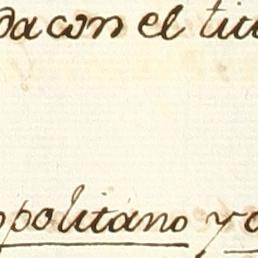 da con el titu
opolitano y o